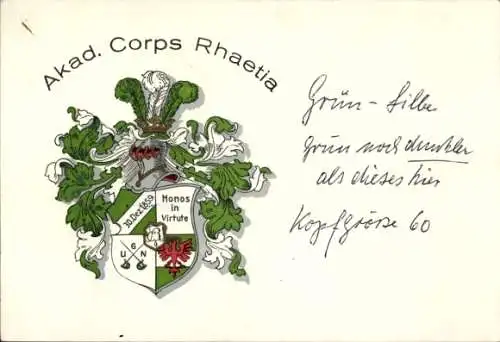 Akad. Corps Rhaetia
10. Dez. 1859
Honos
in
Virtute
6
U N
Grün - Silber
Grün noch dunkler
als dieses hier
Kopfgrösse 60